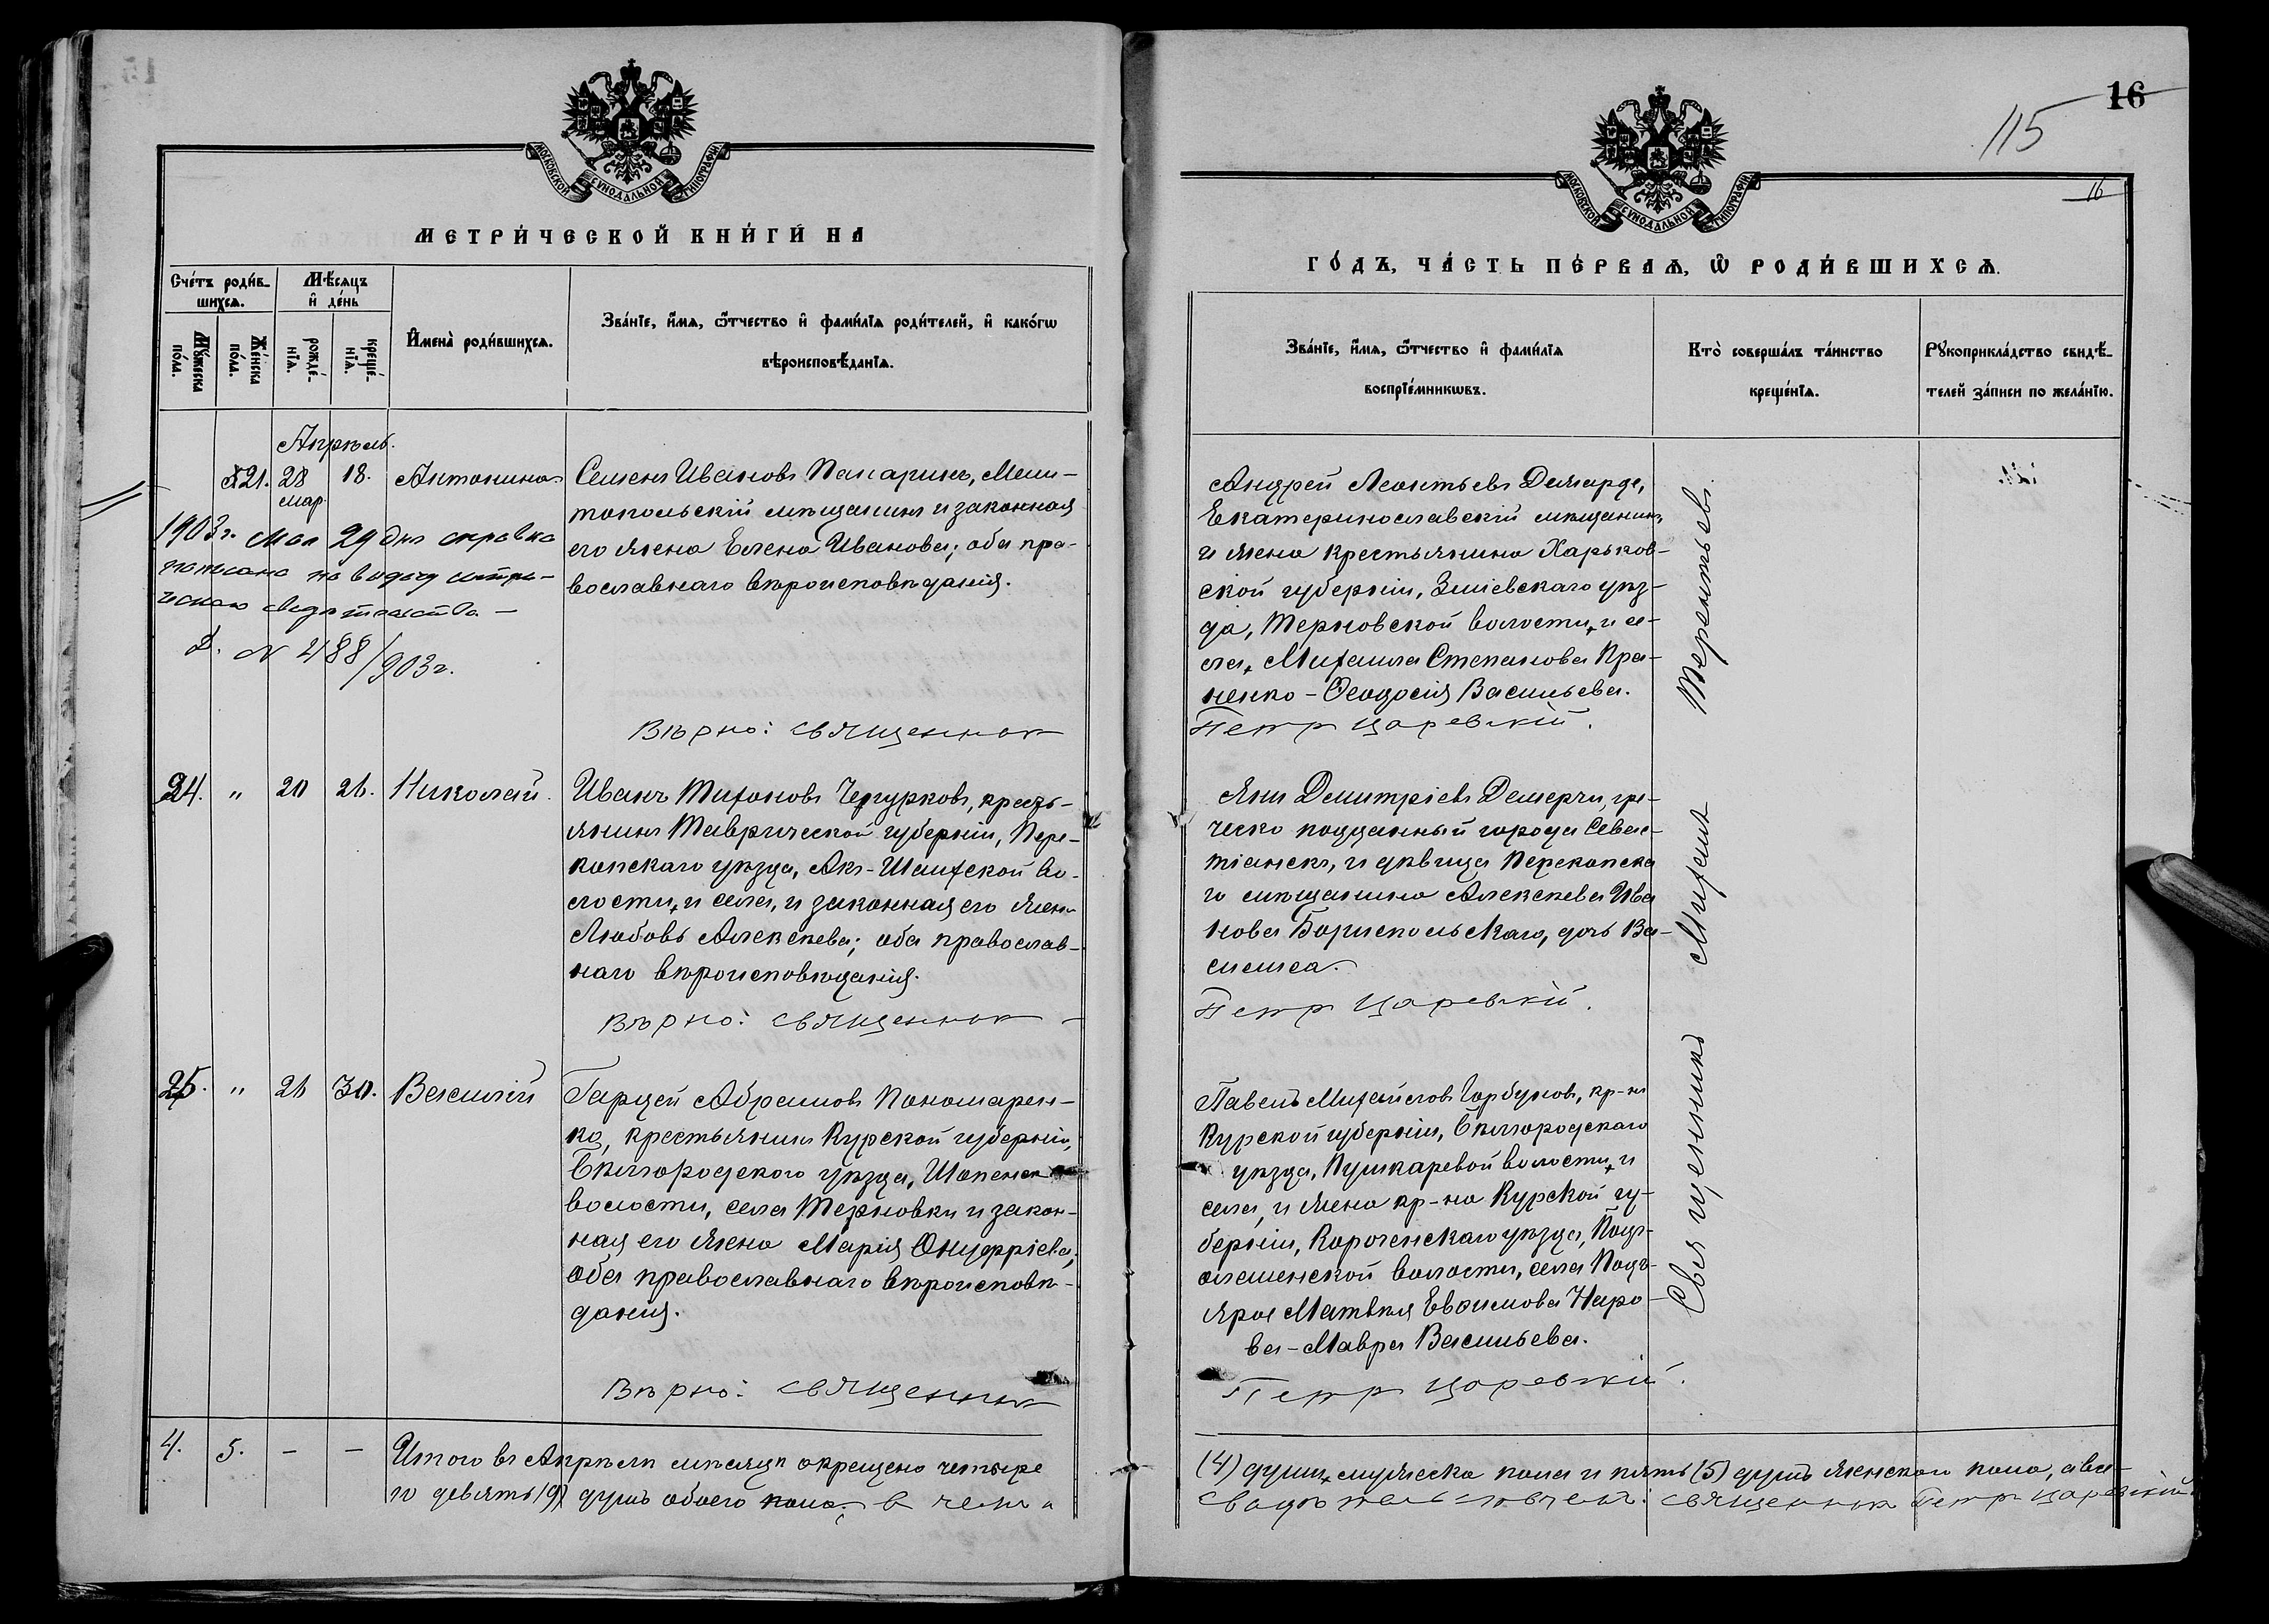 15
МОСКОВСКОЙ СѴНОДАЛЬНОЙ ТИПОГРАФІИ
МЕТРИ́ЧЕСКОЙ КНИ́ГИ НА
Сче́тъ роди́в-
шихсѧ.
Мѣ́сѧцъ
и҆ де́нь
Мꙋ́жеска
по́ла.
Же́нска
по́ла.
рожде́-
нїѧ.
креще́-
нїѧ.
И҆мена̀ роди́вшихсѧ.
Зва́нїе, и҆́мѧ, ѻ҆́тчество и҆ фами́лїѧ роди́телей, и҆ како́гѡ
вѣроисповѣ́данїѧ.
Апрѣль.
21. 28 18. Антонина
мар.
Семенъ Ивановъ Панаринъ, Мели-
топольскій мѣщанинъ и законная
его жена Елена Иванова; оба пра-
вославнаго вѣроисповѣданія.
1903 г. Мая 29 дня справка
написана на выдачу метри-
ческаго свидѣтельства. —
Д. N 488/903 г.
Вѣрно: священникъ
24. " 20 26. Николай.
Иванъ Тихоновъ Чепурковъ, кресть-
янинъ Таврической губерніи, Пере-
копскаго уѣзда, Акъ-Шеихской во-
лости, и села, и законная его жена
Любовь Алексѣева; оба православ-
наго вѣроисповѣданія.
Вѣрно: священникъ —
25. " 26 30. Василій
Гордей Абрамовъ Пономарен-
ко, крестьянинъ Курской губерніи,
Бѣлгородскаго уѣзда, Шопенск
волости, села Терновки и закон-
ная его жена Марія Онуфріева;
оба православнаго вѣроисповѣ-
данія.
Вѣрно: священникъ
4. 5. — — Итого въ Апрѣлѣ мѣсяцѣ окрещено четыре
го девять (9) душъ обоего пола; в чемъ и
16
115
16
МОСКОВСКОЙ СѴНОДАЛЬНОЙ ТИПОГРАФІИ
ГО́ДЪ, ЧА́СТЬ ПЕ́РВАѦ, Ѡ҆ РОДИ́ВШИХСѦ.
Зва́нїе, и҆́мѧ, ѻ҆́тчество и҆ фами́лїѧ
воспрїе́мникѡвъ.
Кто̀ соверша́лъ та́инство
креще́нїѧ.
Рꙋкоприкла́дство свидѣ́-
телей за́писи по жела́нїю.
Андрей Леонтьевъ Дамарде,
Екатеринославскій мѣщанинъ,
и жена крестьянина Харьков-
ской губерніи, Зміевскаго уѣз-
да, Терновской волости, и се-
ла, Михаила Степанова Пра-
ненко - Ѳеодосія Васильева.
Петръ Царевскій.
Яни Димитріевъ Демерчи, гре-
ческо подданный города Севас-
тіанскъ, и дѣвица Перекопска
го мѣщанина Алексѣева Ива
нова Бориспольскаго, дочь Ва-
силиса.
Петръ Царевскій.
Павелъ Михайловъ Горбуновъ, кр-нъ
Курской губерніи, Бѣлгородскаго
уѣзда, Пушкаревой волости, и
села, и жена кр-на Курской гу-
берніи, Короченскаго уѣзда, Под-
ольшенской волости, села Подъ-
ярое Матвѣя Евѳимова Наро-
ва - Мавра Васильева.
Петръ Царевскій.
Священникъ Михаилъ Терентьевъ.
(4) души, мужеска пола и пять (5) душъ женскаго пола, а все-
свидѣтельствуемъ: священникъ Петръ Царевскій.